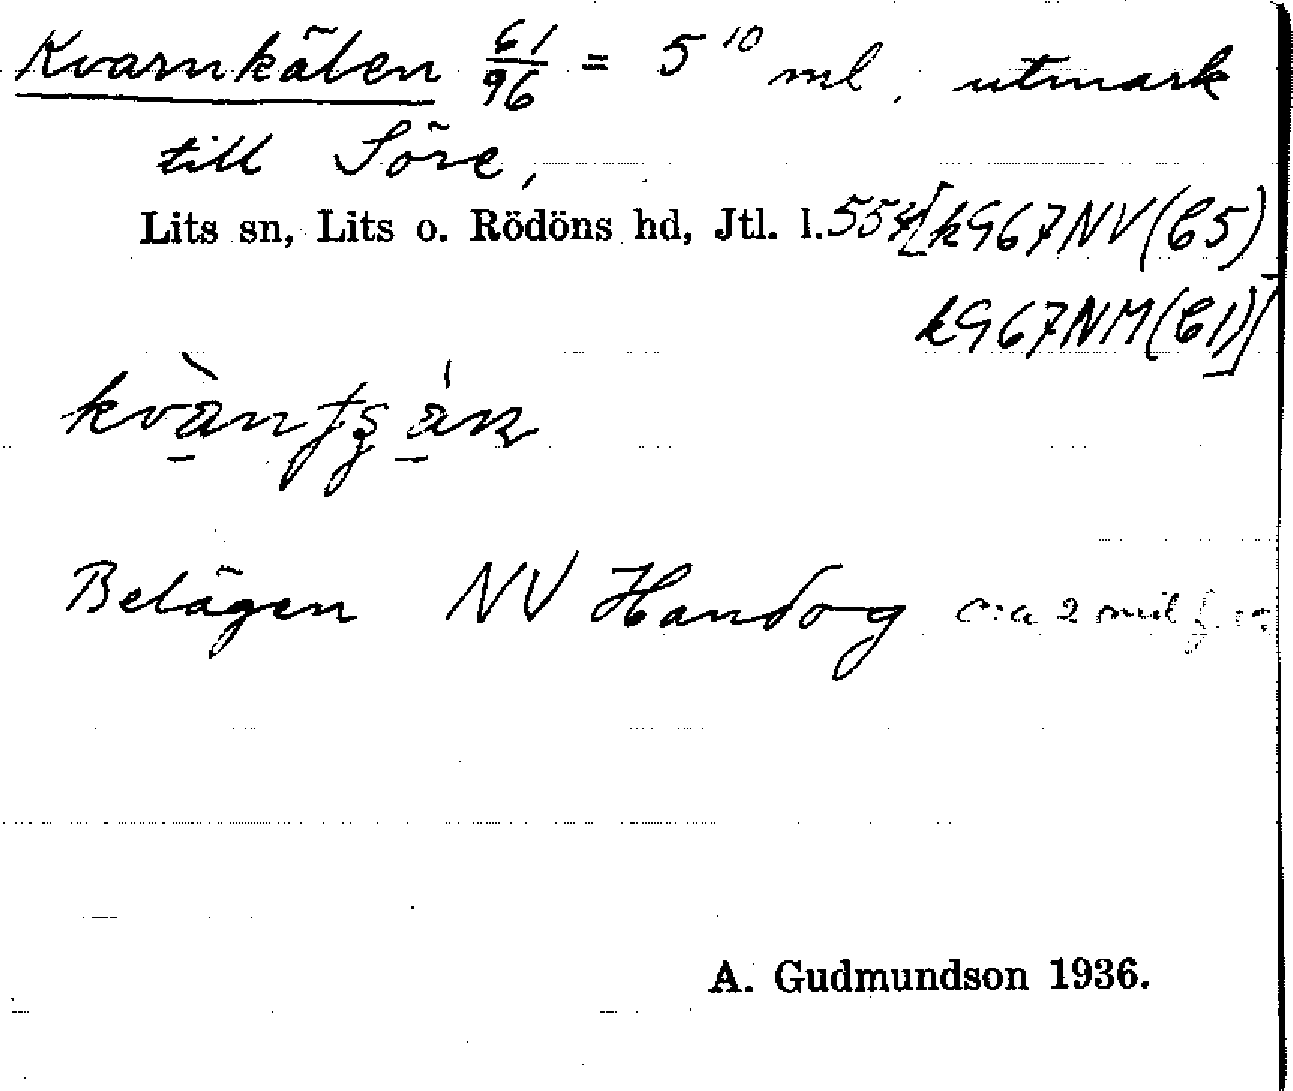 Kvarnkälen 61/96 = 5¹⁰ ml. utmark
till Söre,
Lits sn, Lits o. Rödöns hd, Jtl. l. 554 [k967NV(C5)
k967NM(C1)]
Belägen NV Handog c:a 2 mil
A. Gudmundson 1936.